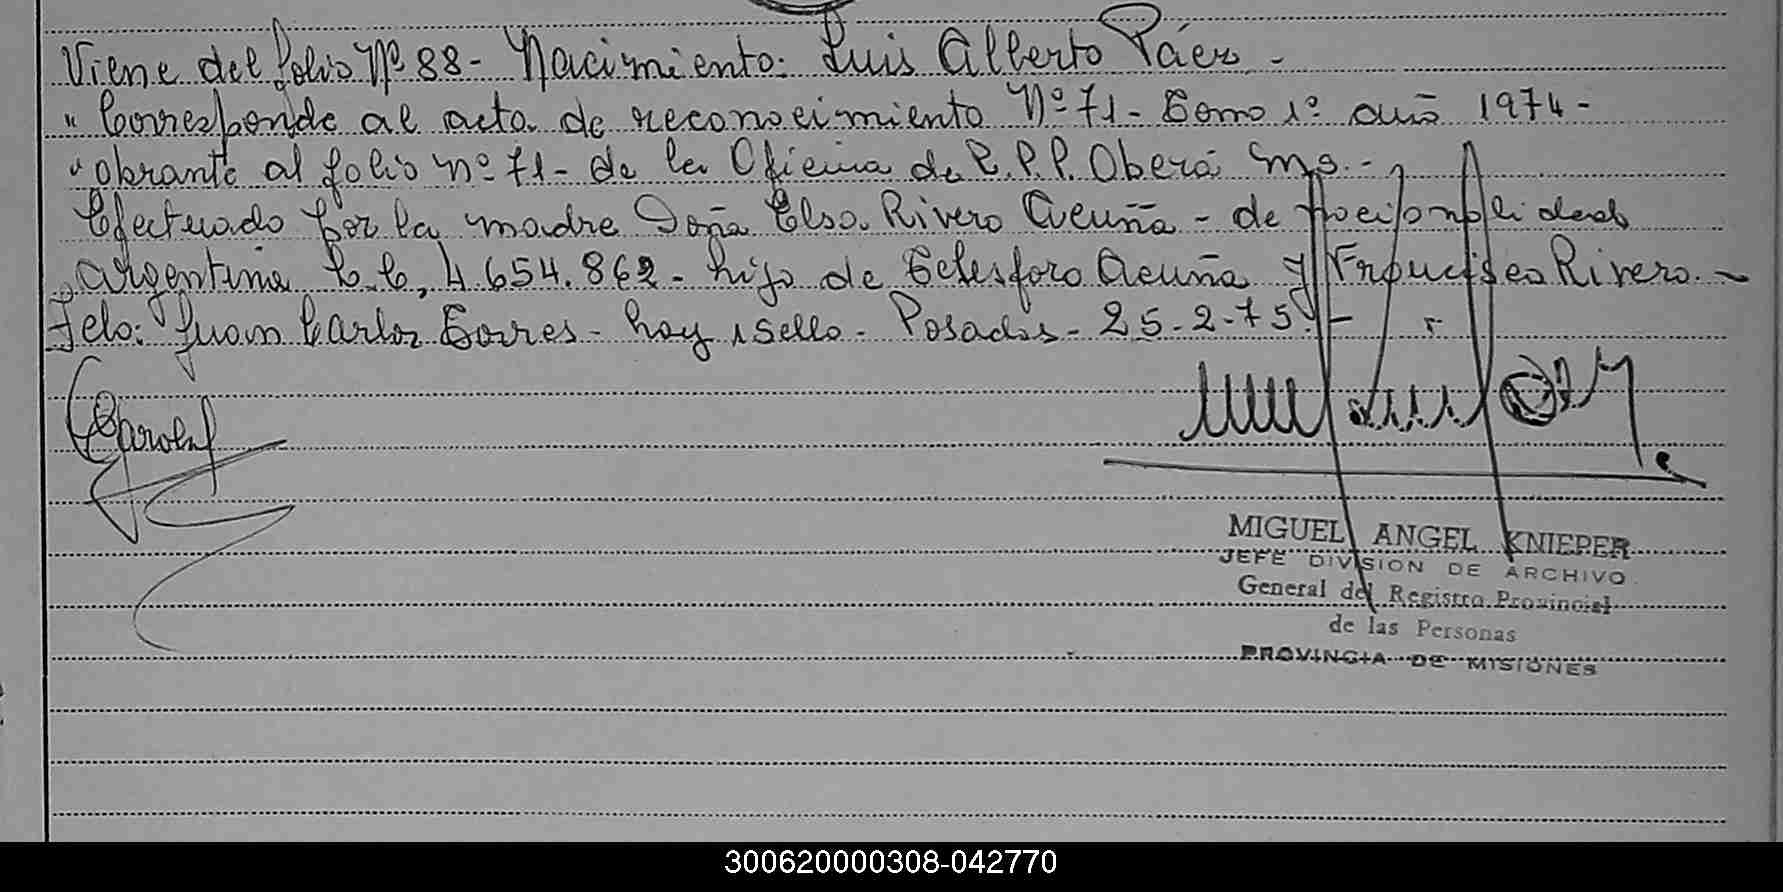 Viene del folio Nº 88- Nacimiento: Luis Alberto Páez -
" Corresponde al acta de reconocimiento Nº 71- Tomo 1º año 1974-
" obrante al folio nº 71- de la Oficina de R.P.P. Oberá Mns.-
Efectuado por la madre Doña Elsa Rivero Acuña - de nacionalidad
argentina L.C, 4.654.862- hija de Telesforo Acuña y Francisca Rivero.-
Fdo: Juan Carlos Torres- hay 1 sello- Posadas- 25-2-75.-
MIGUEL ANGEL KNIEPER
JEFE DIVISION DE ARCHIVO
General del Registro Provincial
de las Personas
PROVINCIA DE MISIONES
300620000308-042770